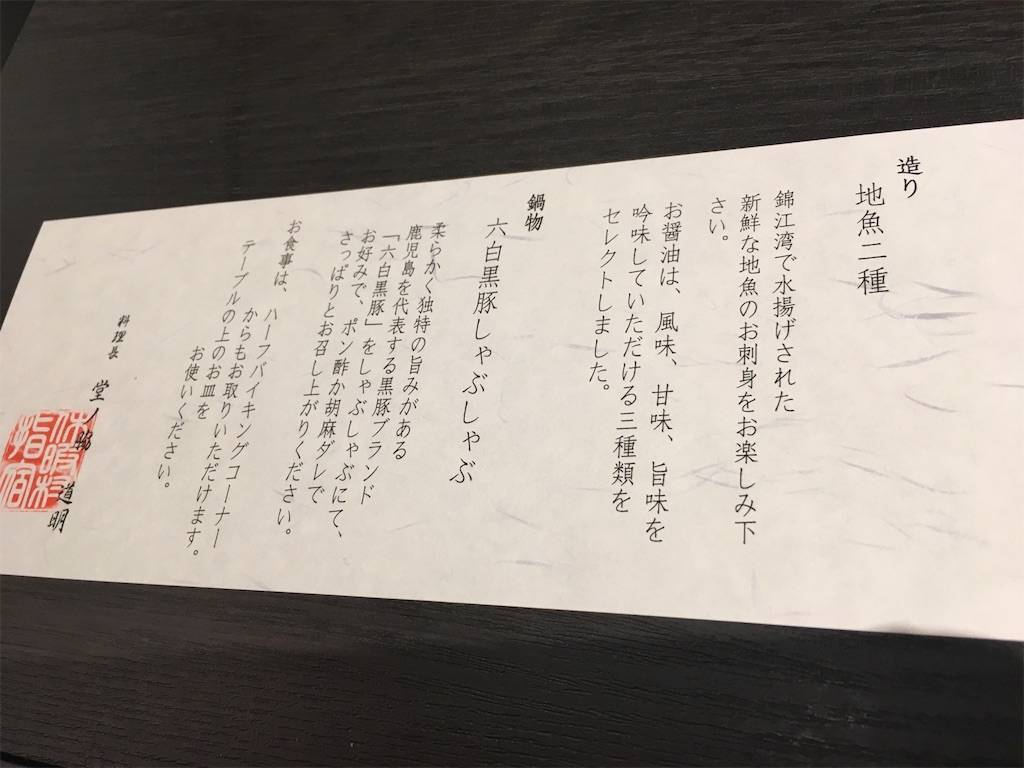 造り
地魚二種
錦江湾で水揚げされた
新鮮な地魚のお刺身をお楽しみ下
さい。
お醤油は、風味、甘味、旨味を
吟味していただける三種類を
セレクトしました。
鍋物
六白黒豚しゃぶしゃぶ
柔らかく独特の旨みがある
鹿児島を代表する黒豚ブランド
「六白黒豚」をしゃぶしゃぶにて、
お好みで、ポン酢か胡麻ダレで
さっぱりとお召し上がりください。
お食事は、ハーフバイキングコーナー
からもお取りいただけます。
テーブルの上のお皿を
お使いください。
料理長 堂ノ脇 道明
休暇村
指宿